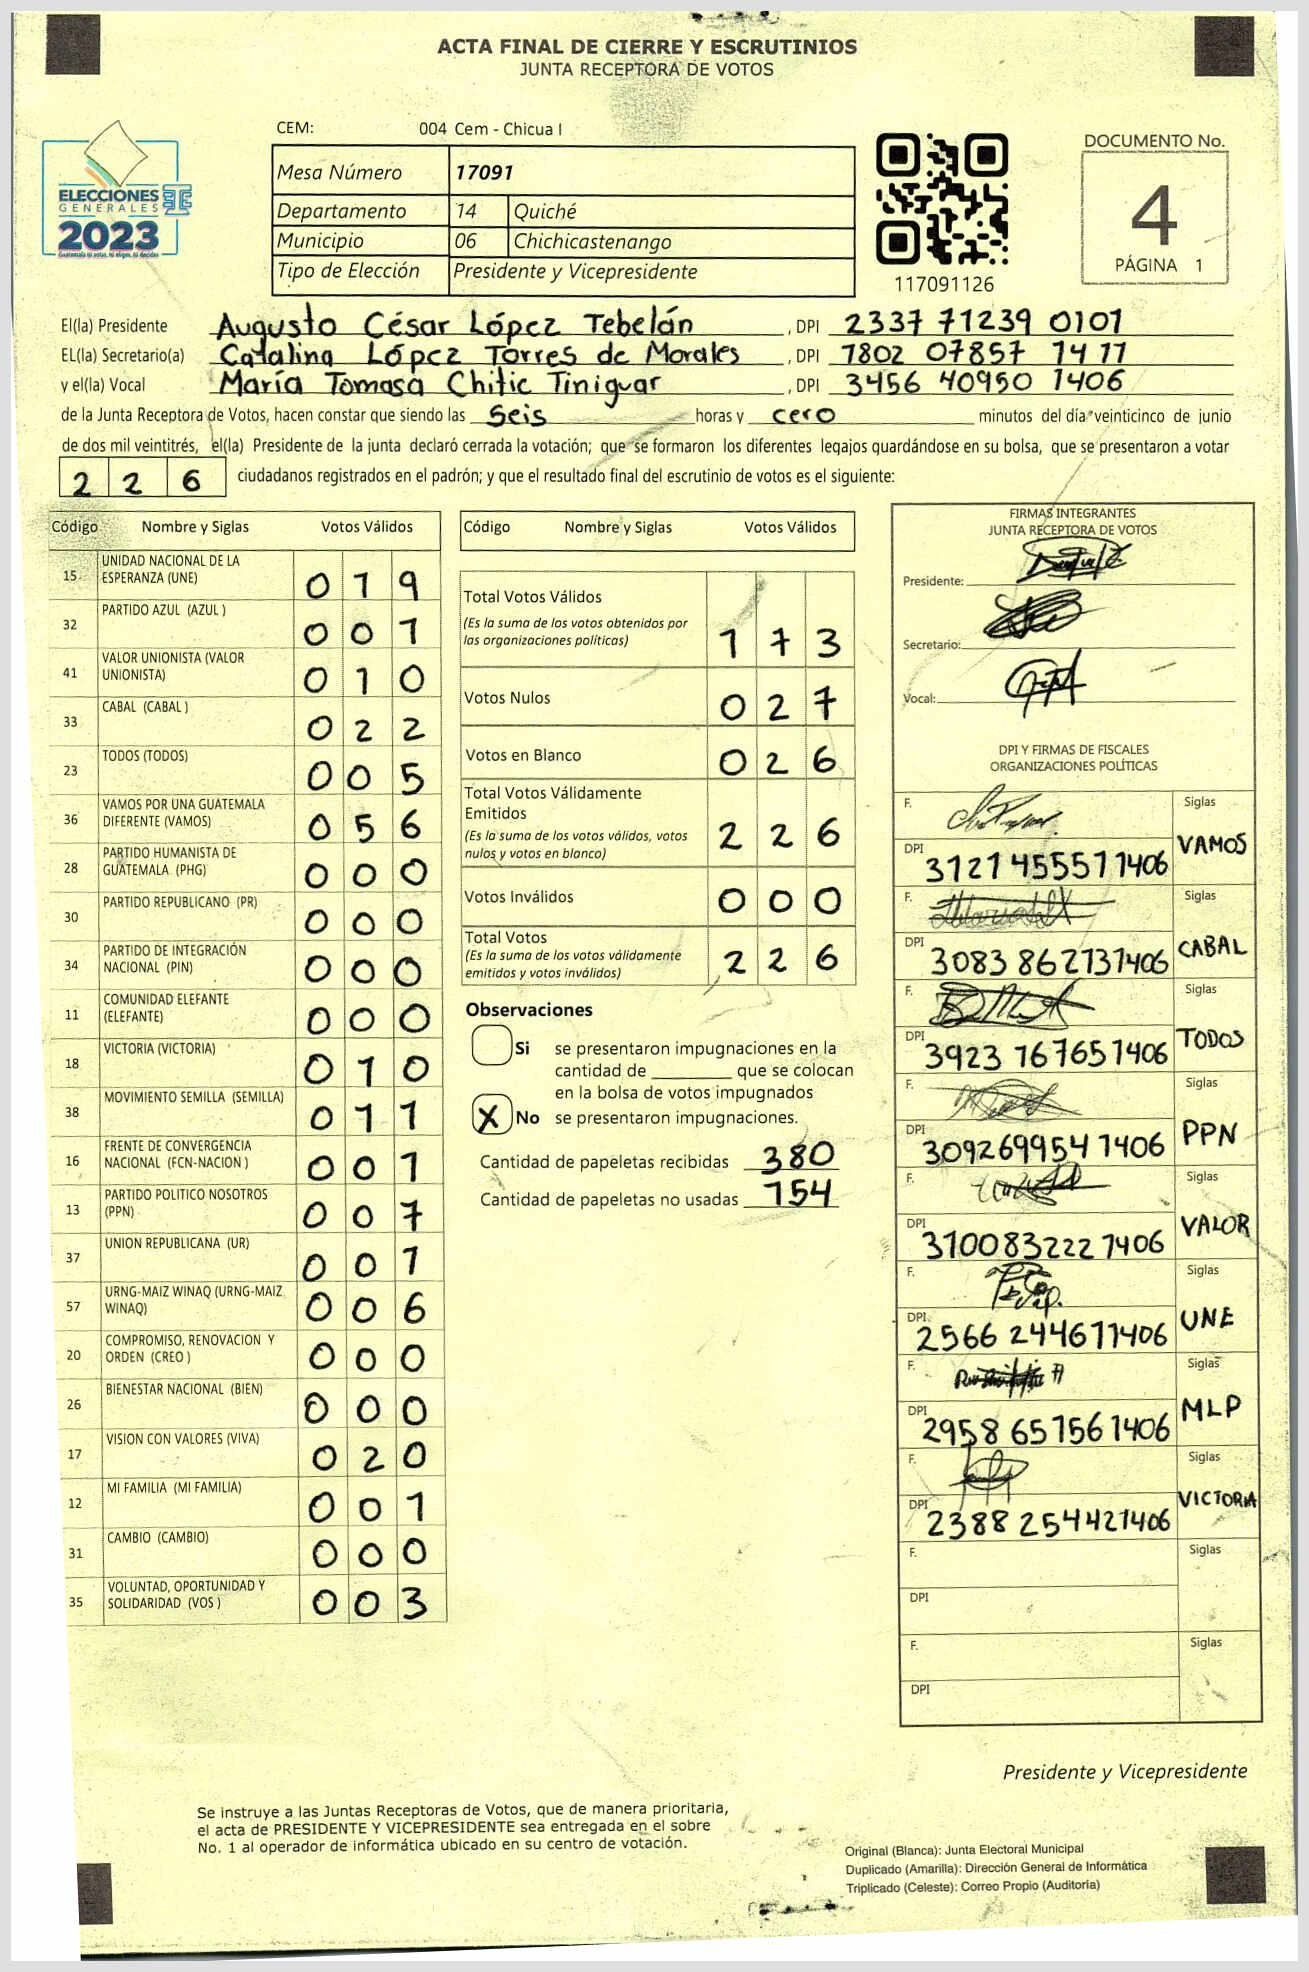 ACTA FINAL DE CIERRE Y ESCRUTINIOS
JUNTA RECEPTORA DE VOTOS
CEM: 004 Cem - Chicua I
Mesa Número 17091
Departamento 14 Quiché
Municipio 06 Chichicastenango
Tipo de Elección Presidente y Vicepresidente
ELECCIONES
GENERALES
2023
Guatemala tú votas, tú eliges, tú decides
117091126
DOCUMENTO No.
4
PÁGINA 1
El(la) Presidente Augusto César López Tebelán , DPI 2337 71239 0101
EL(la) Secretario(a) Catalina López Torres de Morales , DPI 1802 07857 1411
y el(la) Vocal María Tomasa Chitic Tiniguar , DPI 3456 40950 1406
de la Junta Receptora de Votos, hacen constar que siendo las seis horas y cero minutos del día veinticinco de junio
de dos mil veintitrés, el(la) Presidente de la junta declaró cerrada la votación; que se formaron los diferentes legajos guardándose en su bolsa, que se presentaron a votar
226 ciudadanos registrados en el padrón; y que el resultado final del escrutinio de votos es el siguiente:
Código Nombre y Siglas Votos Válidos
15 UNIDAD NACIONAL DE LA
ESPERANZA (UNE) 019
32 PARTIDO AZUL (AZUL ) 001
41 VALOR UNIONISTA (VALOR
UNIONISTA) 010
33 CABAL (CABAL ) 022
23 TODOS (TODOS) 005
36 VAMOS POR UNA GUATEMALA
DIFERENTE (VAMOS) 056
28 PARTIDO HUMANISTA DE
GUATEMALA (PHG) 000
30 PARTIDO REPUBLICANO (PR) 000
34 PARTIDO DE INTEGRACIÓN
NACIONAL (PIN) 000
11 COMUNIDAD ELEFANTE
(ELEFANTE) 000
18 VICTORIA (VICTORIA) 010
38 MOVIMIENTO SEMILLA (SEMILLA) 011
16 FRENTE DE CONVERGENCIA
NACIONAL (FCN-NACION ) 001
13 PARTIDO POLITICO NOSOTROS
(PPN) 007
37 UNION REPUBLICANA (UR) 001
57 URNG-MAIZ WINAQ (URNG-MAIZ
WINAQ) 006
20 COMPROMISO, RENOVACION Y
ORDEN (CREO ) 000
26 BIENESTAR NACIONAL (BIEN) 000
17 VISION CON VALORES (VIVA) 020
12 MI FAMILIA (MI FAMILIA) 001
31 CAMBIO (CAMBIO) 000
35 VOLUNTAD, OPORTUNIDAD Y
SOLIDARIDAD (VOS ) 003
Código Nombre y Siglas Votos Válidos
Total Votos Válidos
(Es la suma de los votos obtenidos por
las organizaciones políticas) 173
Votos Nulos 027
Votos en Blanco 026
Total Votos Válidamente
Emitidos
(Es la suma de los votos válidos, votos
nulos y votos en blanco) 226
Votos Inválidos 000
Total Votos
(Es la suma de los votos válidamente
emitidos y votos inválidos) 226
Observaciones
Si se presentaron impugnaciones en la
cantidad de ________ que se colocan
en la bolsa de votos impugnados
X No se presentaron impugnaciones.
Cantidad de papeletas recibidas 380
Cantidad de papeletas no usadas 154
FIRMAS INTEGRANTES
JUNTA RECEPTORA DE VOTOS
Presidente:
Secretario:
Vocal:
DPI Y FIRMAS DE FISCALES
ORGANIZACIONES POLÍTICAS
F. Siglas
DPI 3121 455571406 VAMOS
F. Siglas
DPI 3083 862731406 CABAL
F. Siglas
DPI 3923 167651406 TODOS
F. Siglas
DPI 3092699541406 PPN
F. Siglas
DPI 3100832221406 VALOR
F. Siglas
DPI 2566 244611406 UNE
F. Siglas
DPI 2958 657561406 MLP
F. Siglas
DPI 2388 254421406 VICTORIA
F. Siglas
DPI
F. Siglas
DPI
Presidente y Vicepresidente
Se instruye a las Juntas Receptoras de Votos, que de manera prioritaria,
el acta de PRESIDENTE Y VICEPRESIDENTE sea entregada en el sobre
No. 1 al operador de informática ubicado en su centro de votación.
Original (Blanca): Junta Electoral Municipal
Duplicado (Amarilla): Dirección General de Informática
Triplicado (Celeste): Correo Propio (Auditoría)